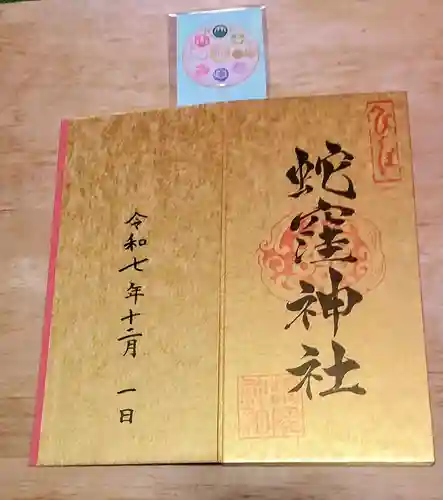 蛇窪神社
令和七年十二月 一日